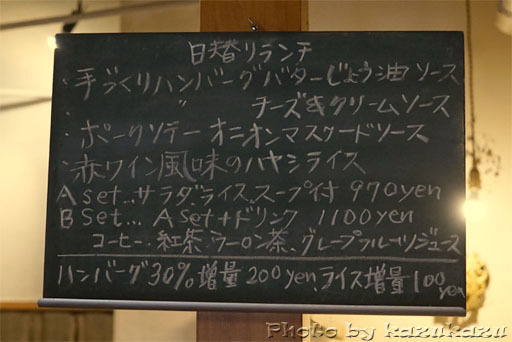 日替りランチ
・手づくりハンバーグバターじょう油ソース
・ 〃 チーズ&クリームソース
・ポークソテーオニオンマスタードソース
・赤ワイン風味のハヤシライス
A set...サラダ、ライス、スープ付 970yen
B set... A set+ドリンク 1100yen
コーヒー・紅茶・ウーロン茶、グレープフルーツジュース
ハンバーグ30%増量200yen、ライス増量100yen
Photo by kazukazu